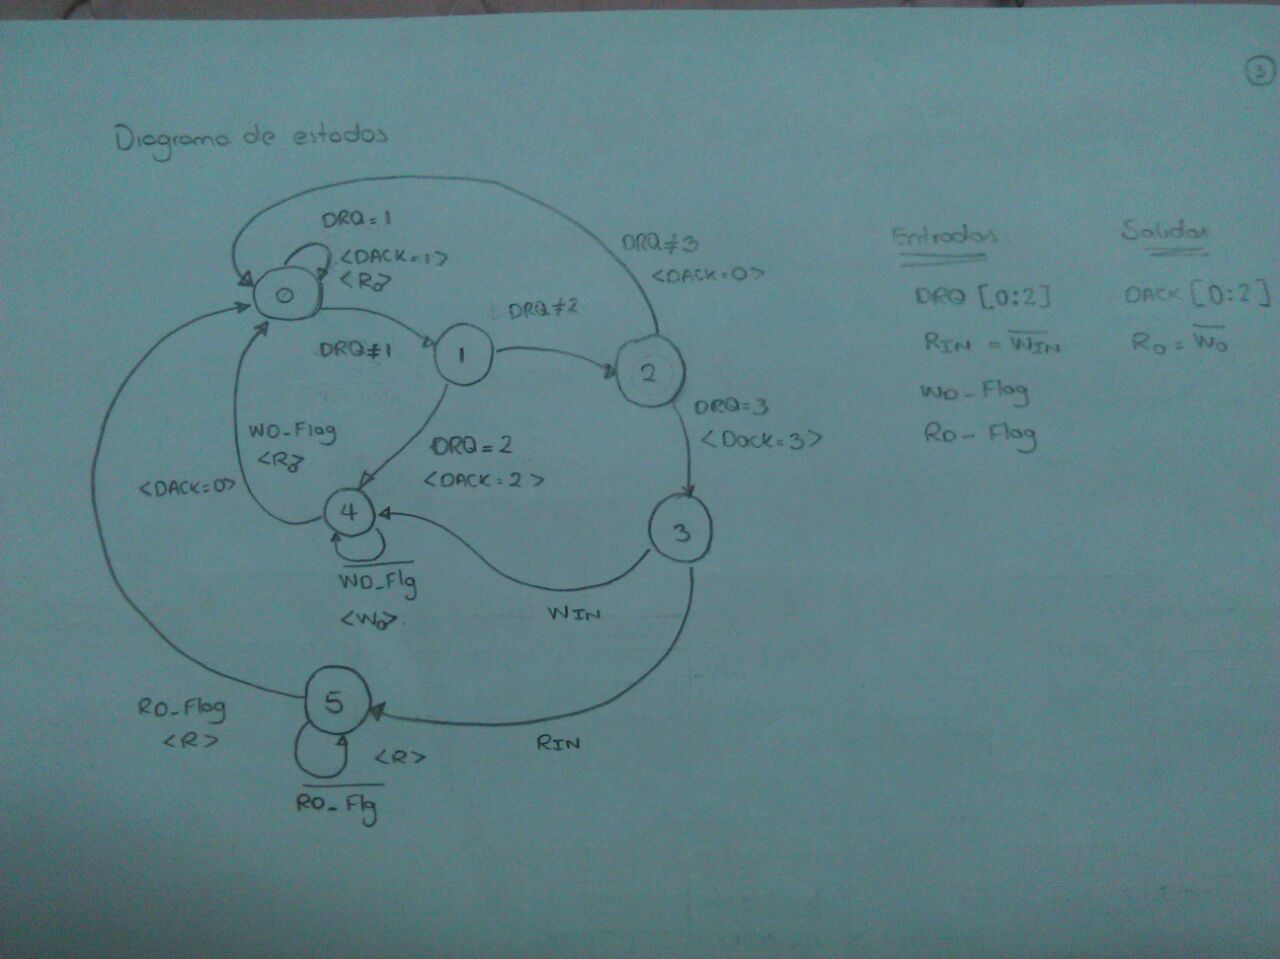 3
Diagrama de estados
DRQ = 1
<DACK = 1>
<Ro>
0
DRQ≠1
1
DRQ≠2
2
DRQ≠3
<DACK=0>
DRQ=3
<Dack=3>
3
DRQ=2
<DACK=2>
WO_Flag
<Ro>
<DACK=0>
4
W̅O̅_̅F̅l̅g̅
<Wo>
WIN
5
RO_Flag
<R>
<R>
R̅O̅_̅F̅l̅g̅
RIN
Entradas
DRQ [0:2]
RIN = W̅I̅N̅
WO-Flag
RO-Flag
Salidas
DACK [0:2]
Ro = W̅o̅